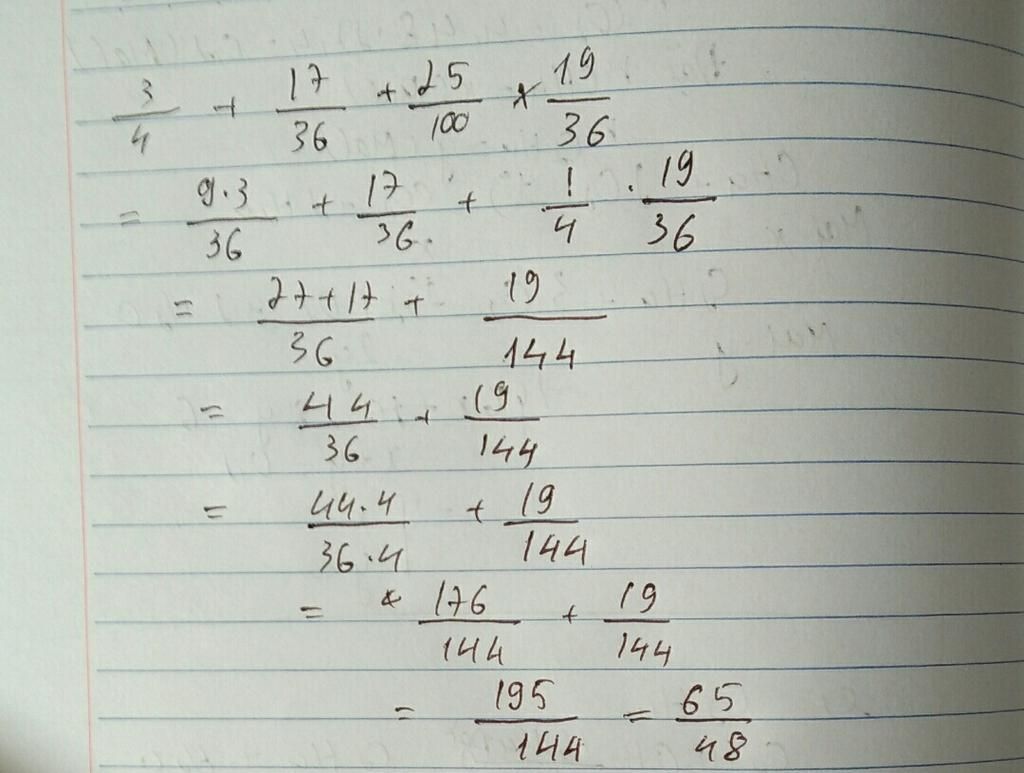 3/4 + 17/36 + 25/100 × 19/36
= 9·3/36 + 17/36 + 1/4 · 19/36
= 27+17/36 + 19/144
= 44/36 + 19/144
= 44·4/36·4 + 19/144
= 176/144 + 19/144
= 195/144 = 65/48